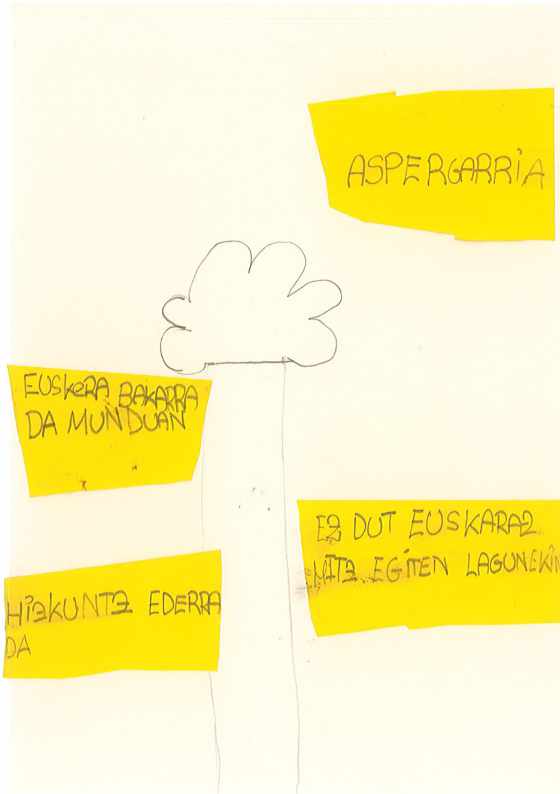 ASPERGARRiA
EUSKERA BAKARRA
DA MUNDUAN
EZ DUT EUSKARAZ
HITZ EGITEN LAGUNEKIN
HIZKUNTZ EDERRA
DA